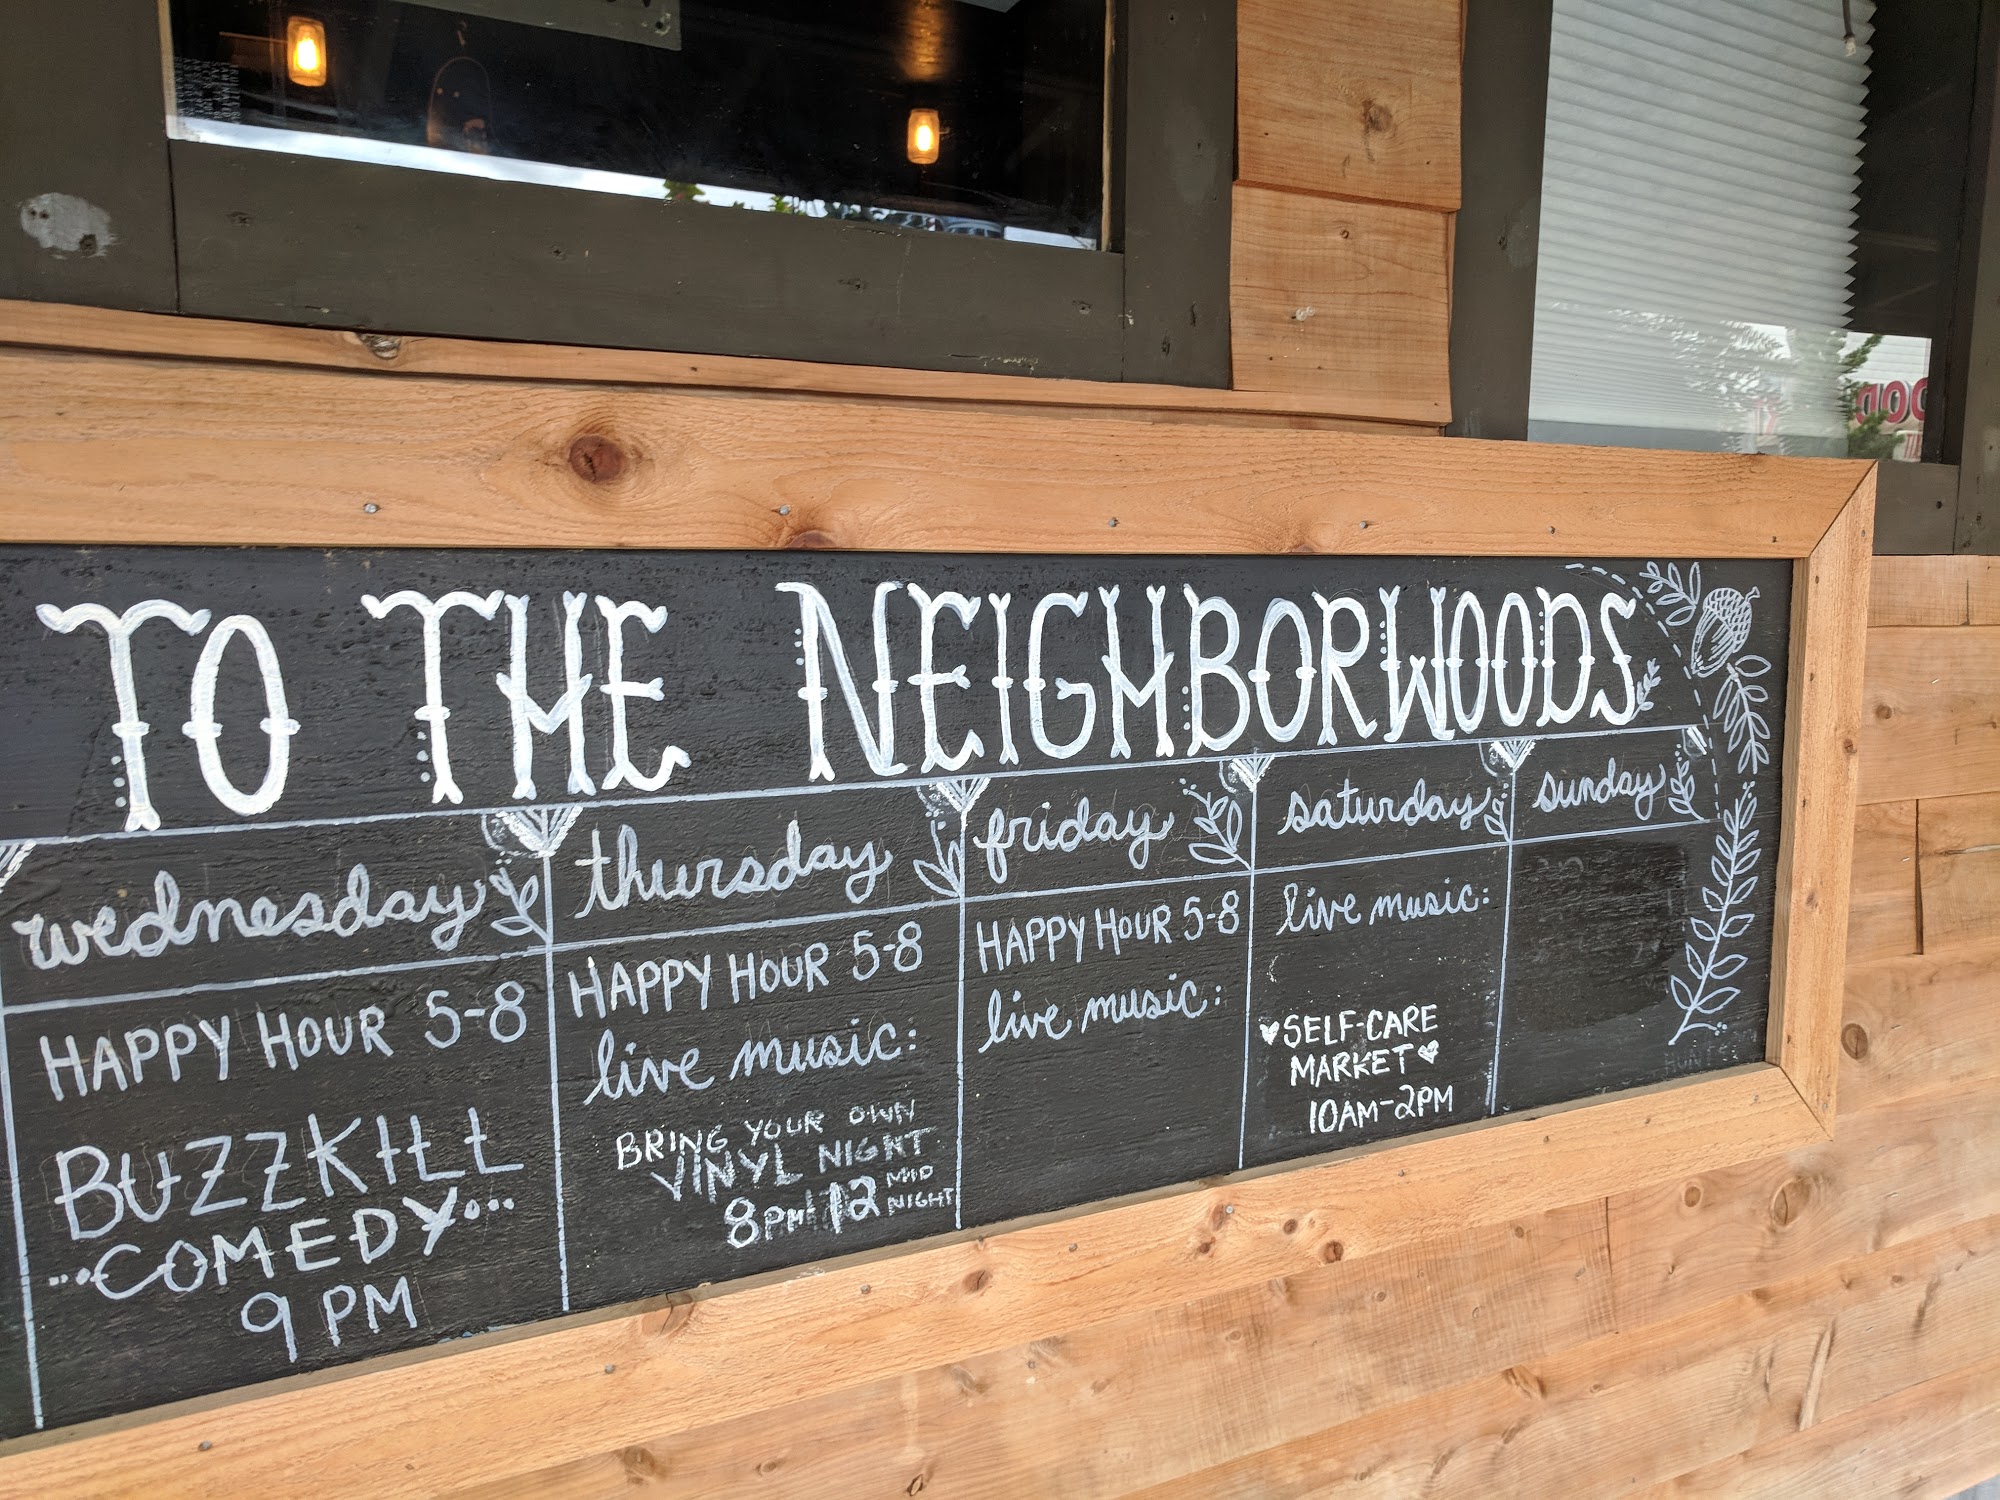 TO THE NEIGHBORWOODS
wednesday
HAPPY HOUR 5-8
BUZZKILL
...COMEDY...
9 PM
thursday
HAPPY HOUR 5-8
live music:
BRING YOUR OWN
VINYL NIGHT
8PM-12 MID
NIGHT
friday
HAPPY HOUR 5-8
live music:
saturday
live music:
SELF-CARE
MARKET
10AM-2PM
sunday